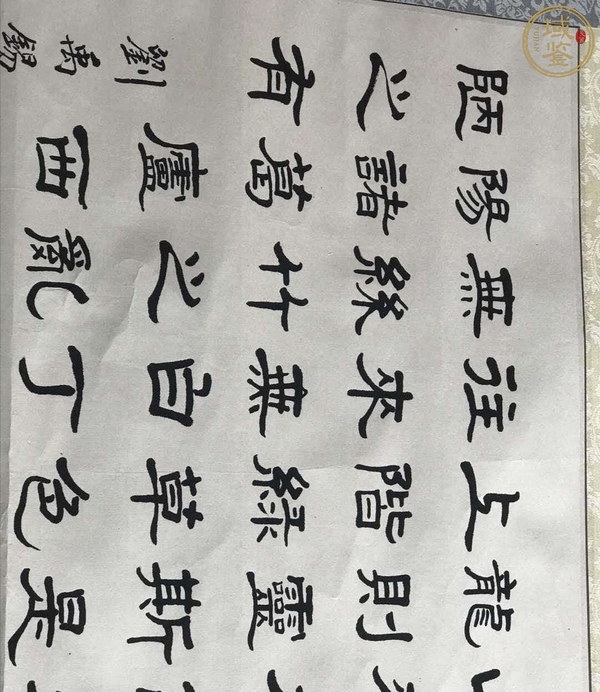 龍則靈斯是
上階綠草色
往來無白丁
無絲竹之亂
陽諸葛廬西
陋之有
劉禹錫
域鉴